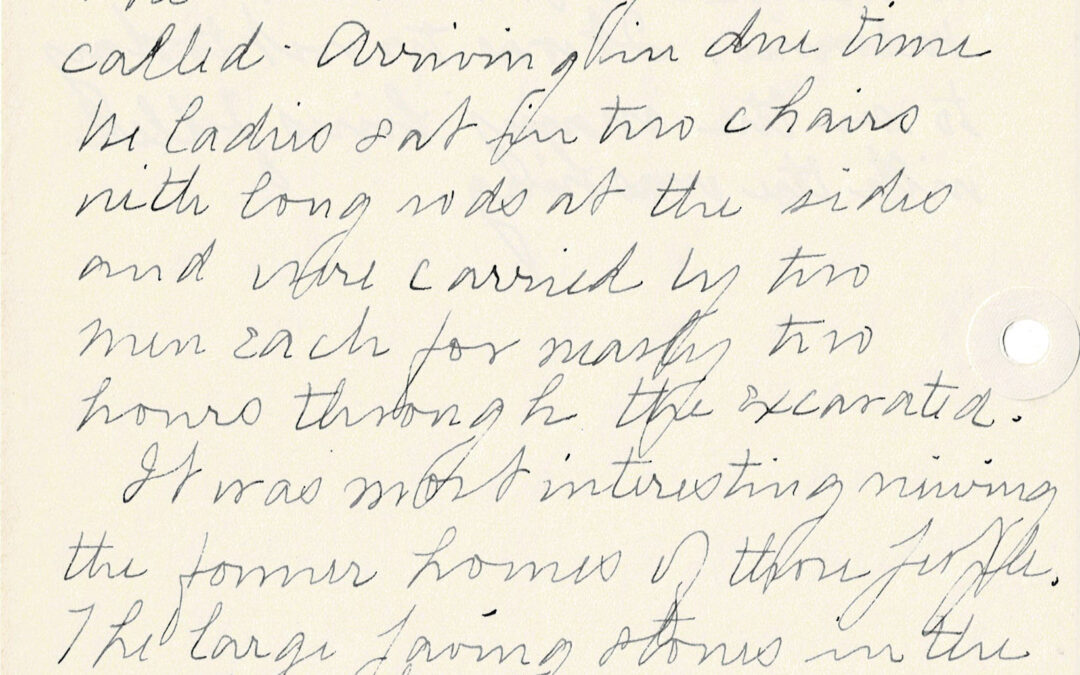 called. Arriving in due time
the ladies sat in two chairs
with long rods at the sides
and were carried by two
men each for nearly two
hours through the excavated.
It was most interesting viewing
the former homes of those people.
The large paving stones in the